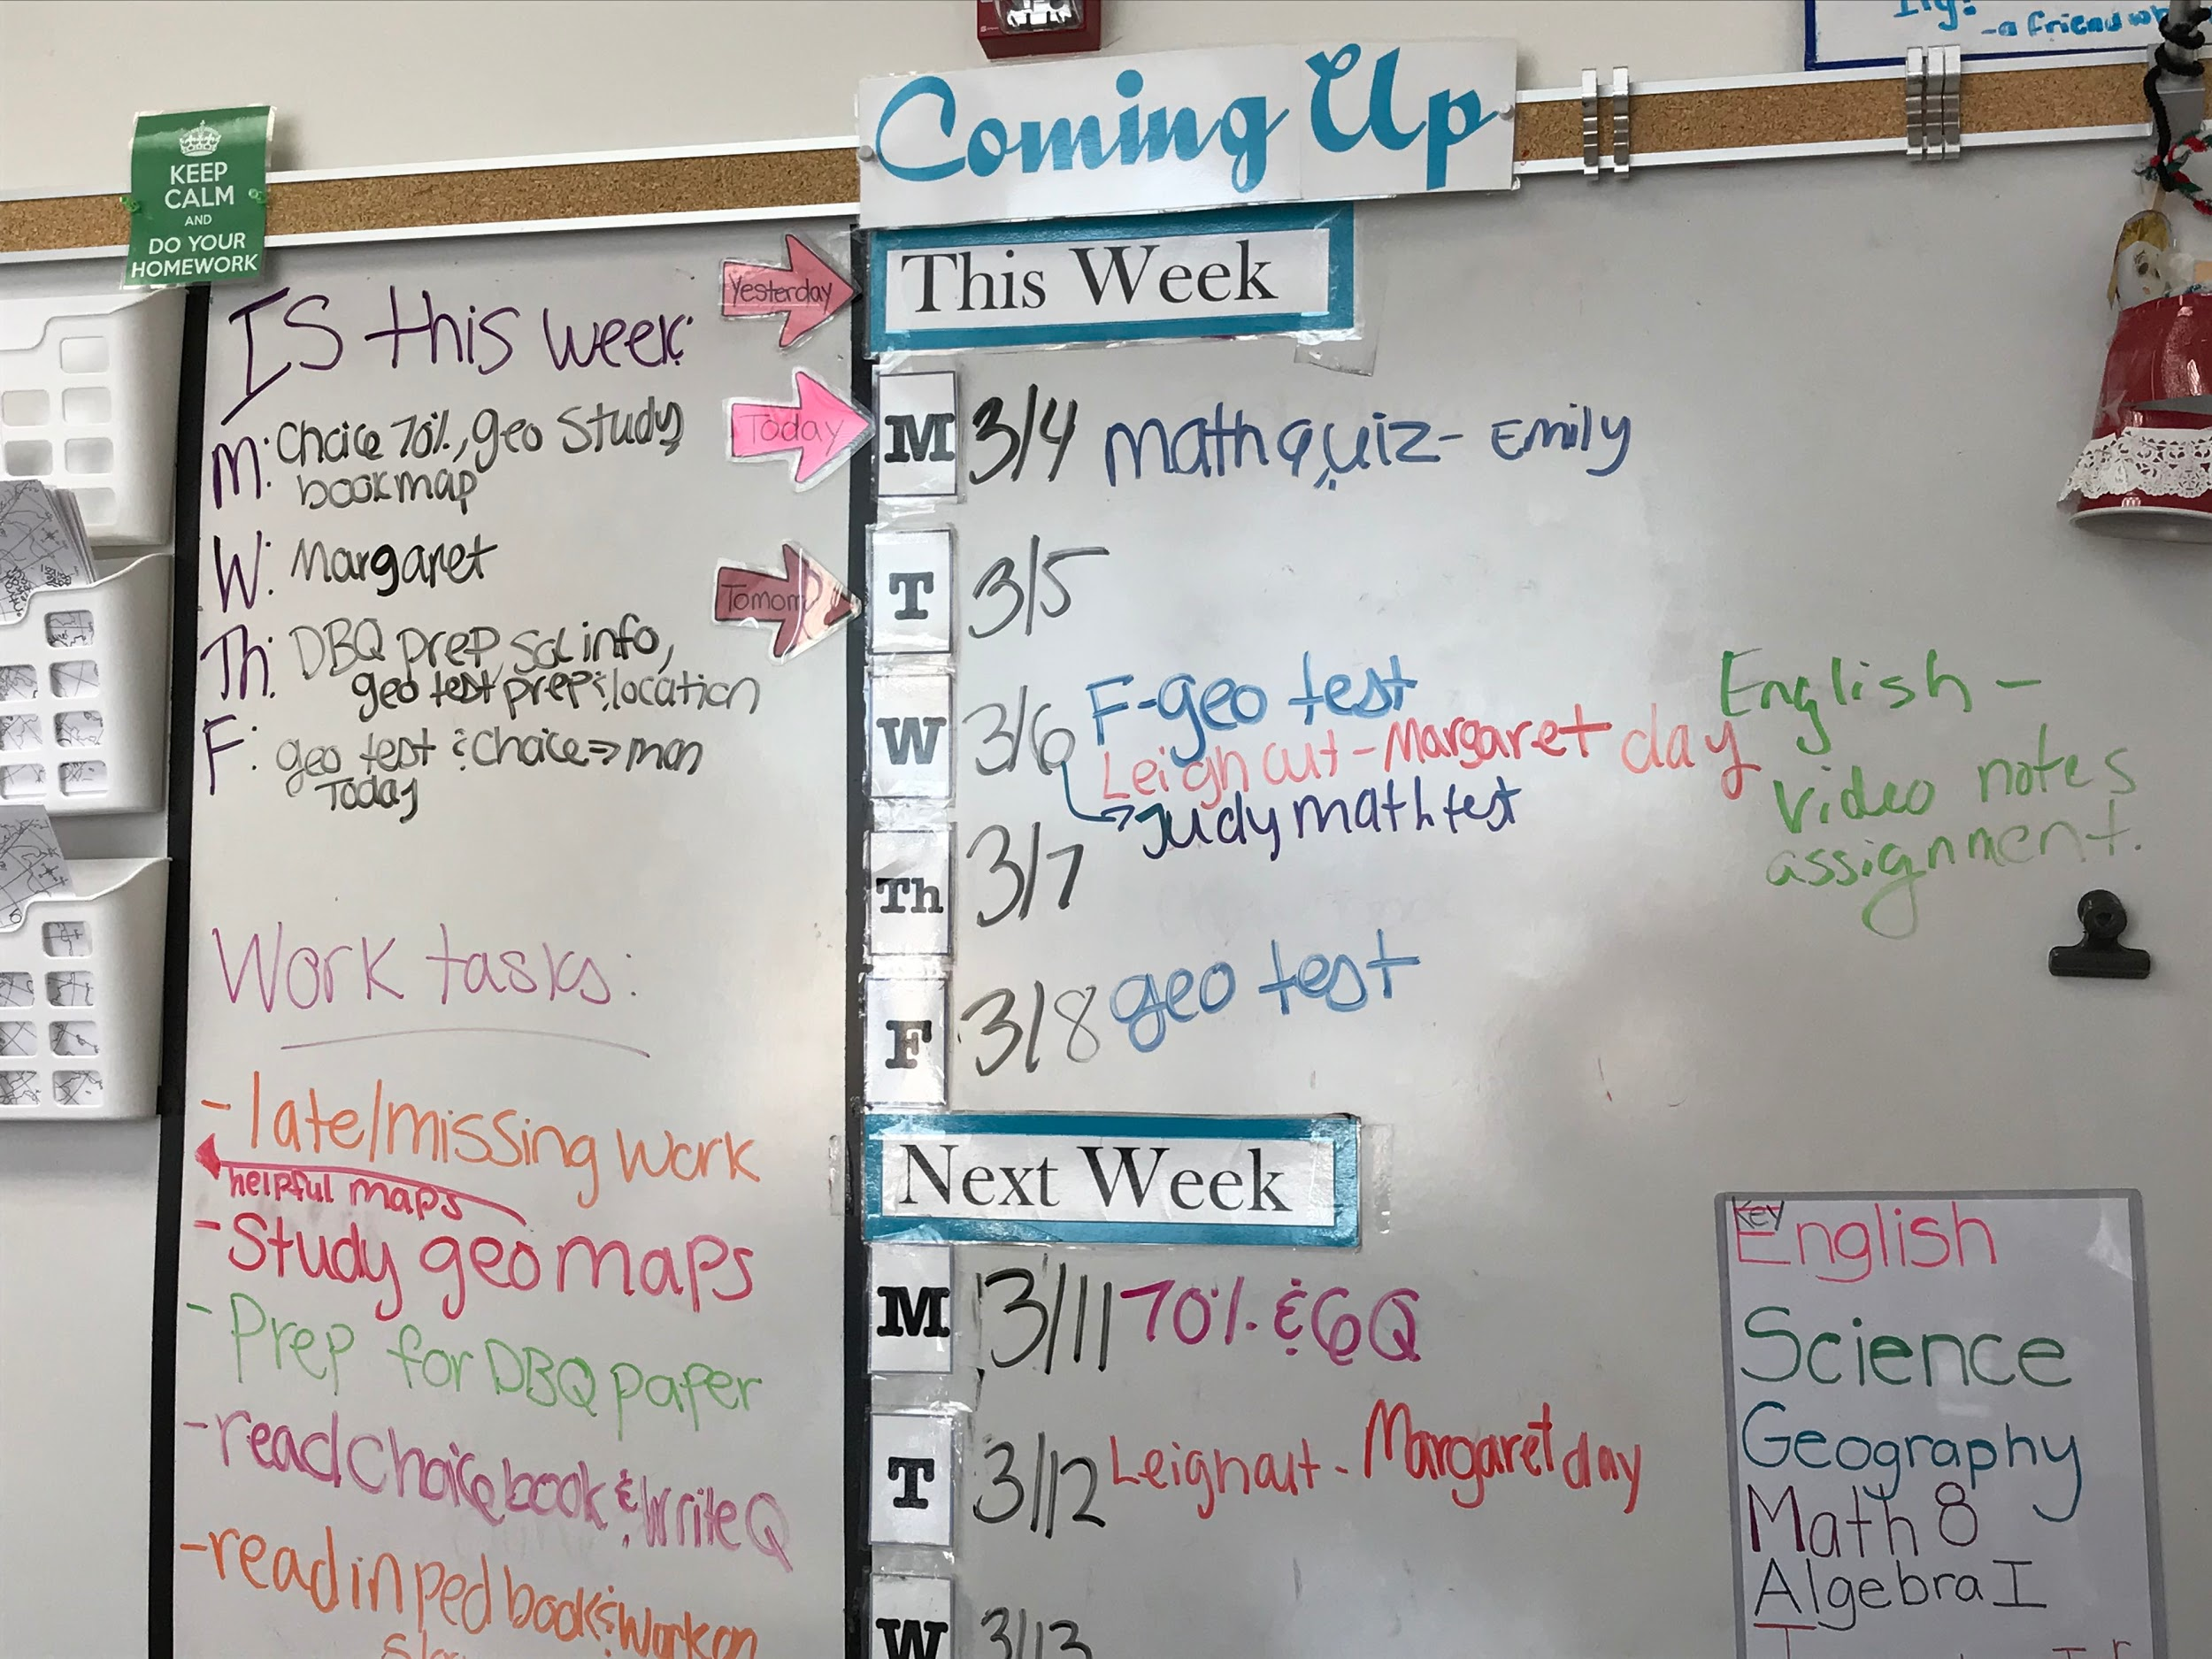 - a friend wh
Coming Up
KEEP
CALM
AND
DO YOUR
HOMEWORK
IS this week:
M: Choice 70%, geo Study
book map
W: Margaret
Th: DBQ prep, Sol info,
geo test prep & location
F: geo test & Choice ⇒ mon
Today
Work tasks:
- late/missing work
helpful maps
- Study geo maps
- Prep for DBQ paper
- read Choice book & write Q
- read in ped book & work on
Yesterday
Today
Tomorr
This Week
M 3/4 math quiz - Emily
T 3/5
W 3/6 F-geo test
Leigh out - Margaret day
→ Judy math test
English -
Video notes
assignment.
Th 3/7
F 3/8 geo test
Next Week
M 3/11 70% & 6Q
T 3/12 Leigh out - Margaret day
W 3/13
Key
English
Science
Geography
Math 8
Algebra I